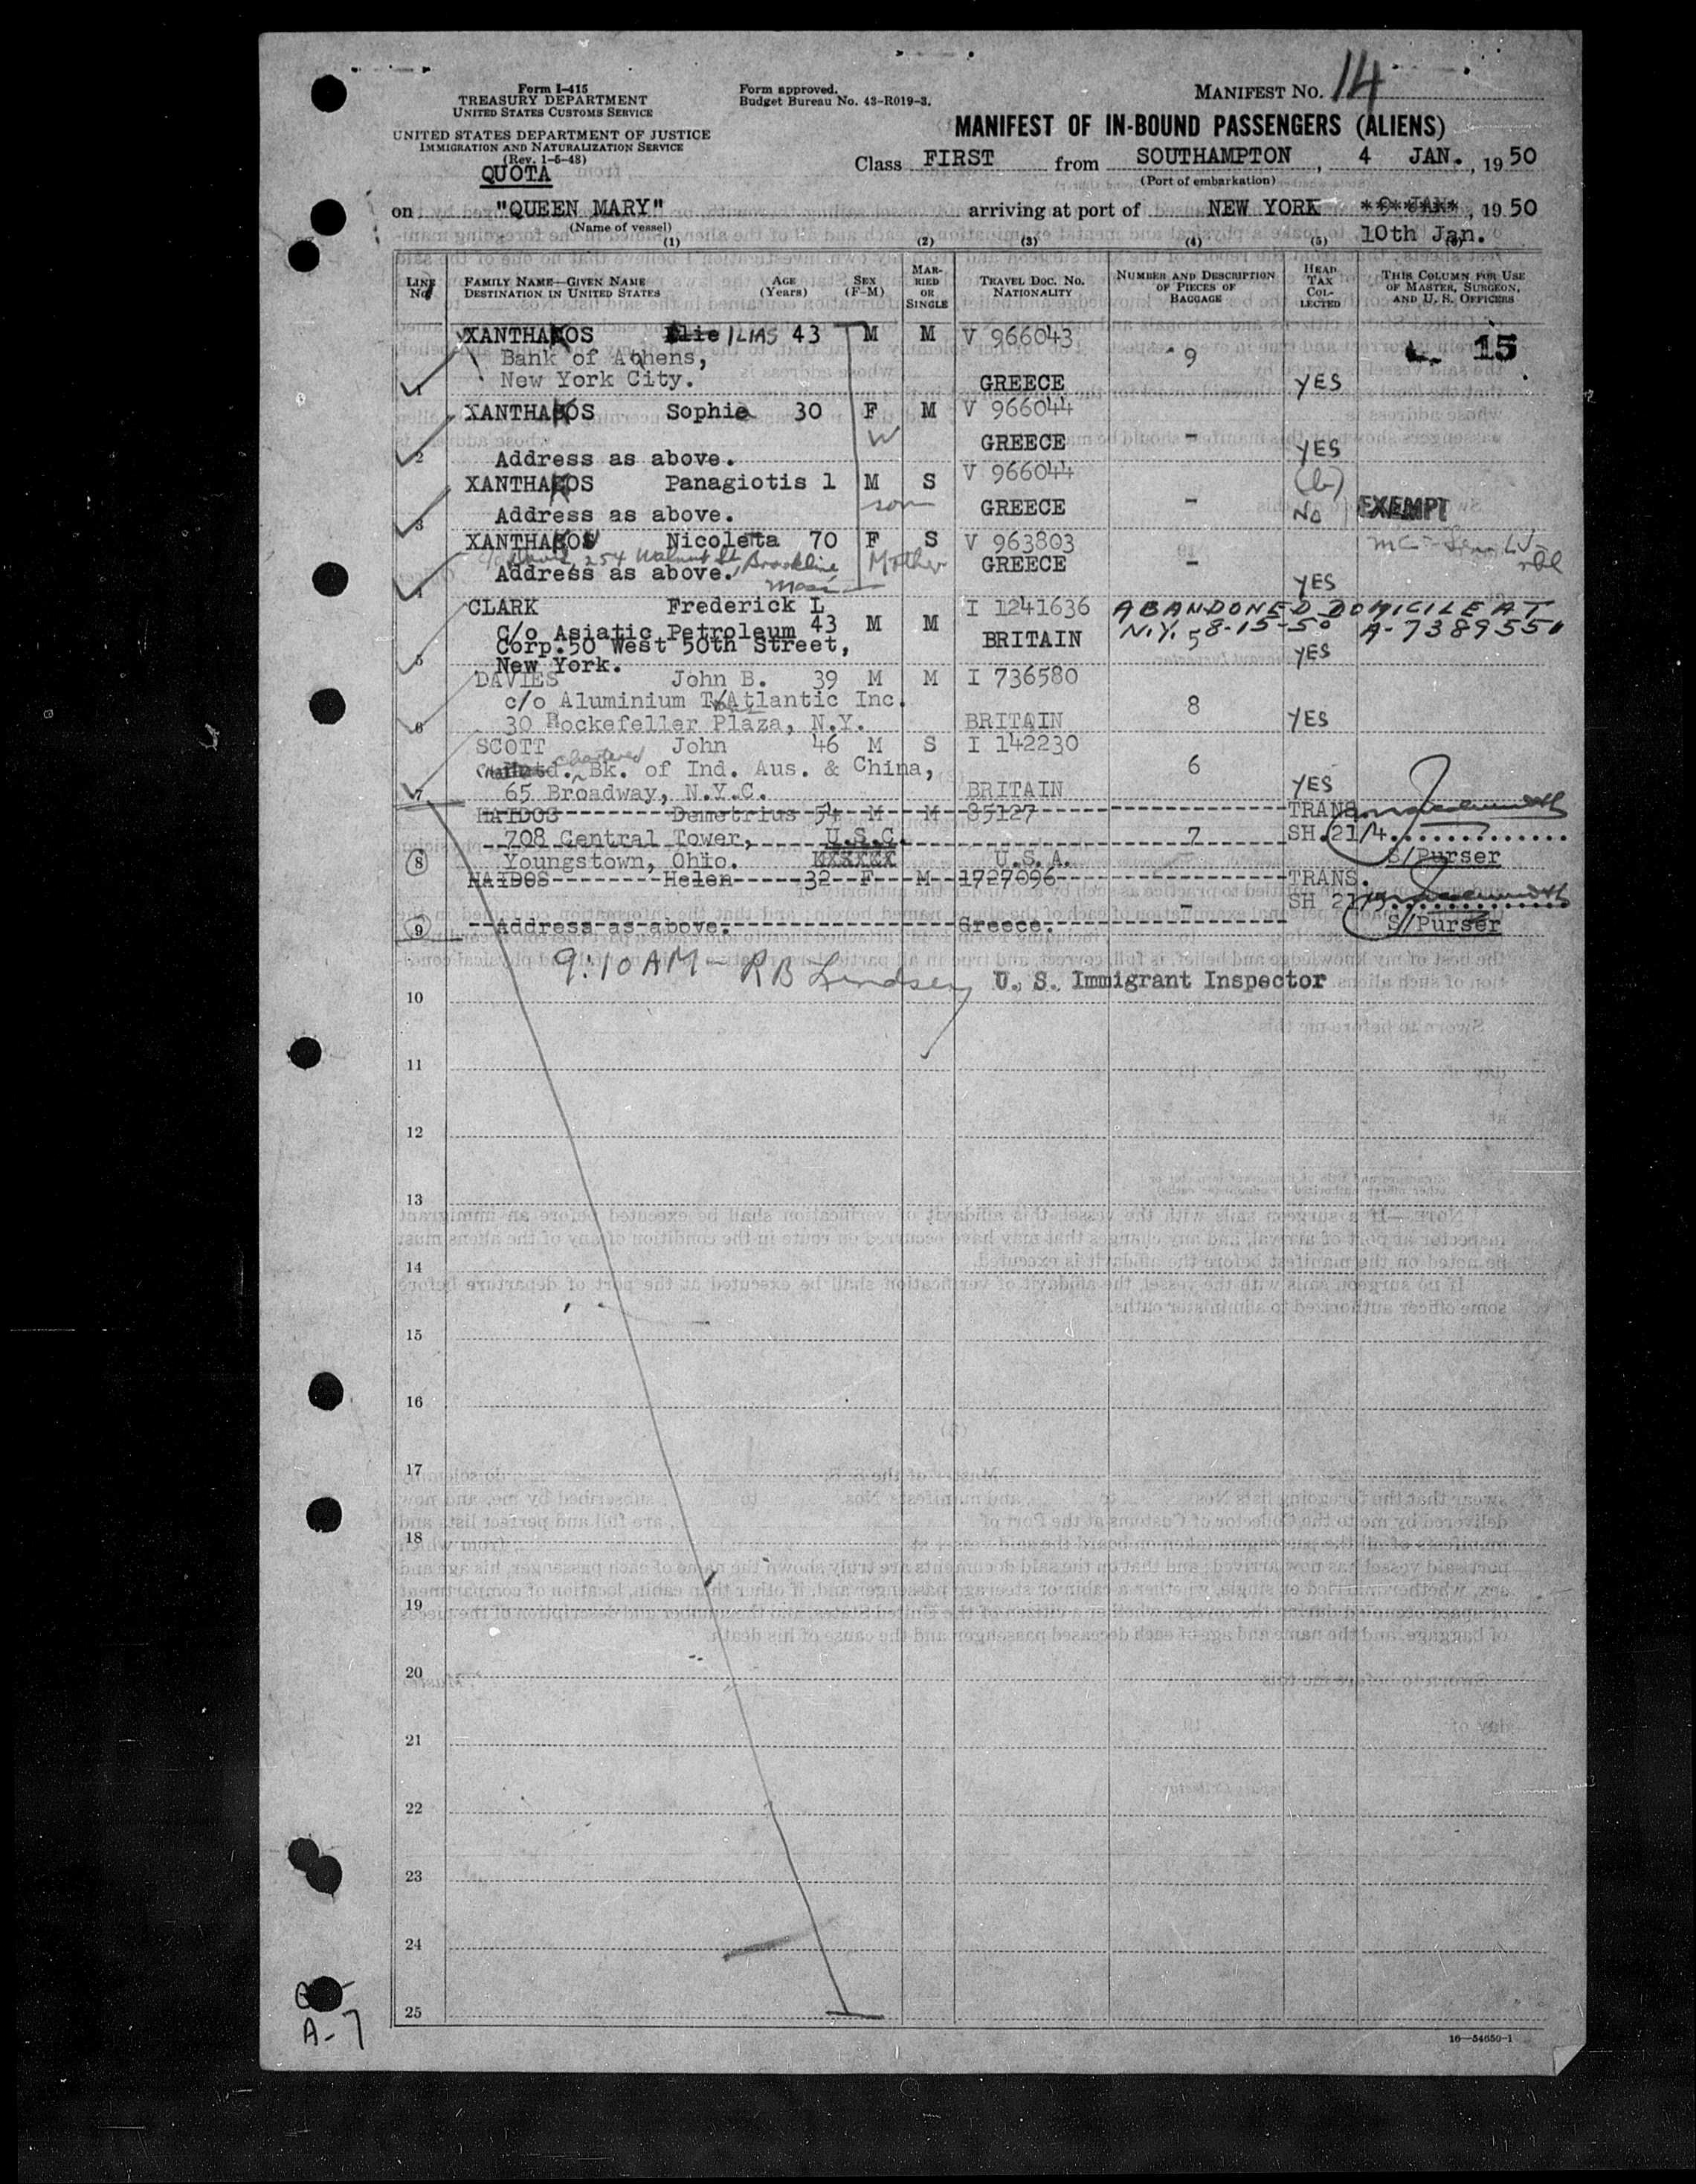 Form I-415
TREASURY DEPARTMENT
UNITED STATES CUSTOMS SERVICE
UNITED STATES DEPARTMENT OF JUSTICE
IMMIGRATION AND NATURALIZATION SERVICE
(Rev. 1-5-48)
QUOTA
Form approved.
Budget Bureau No. 43-R019-3.
MANIFEST NO. 14
MANIFEST OF IN-BOUND PASSENGERS (ALIENS)
Class FIRST from SOUTHAMPTON, 4 JAN., 1950
(Port of embarkation)
on "QUEEN MARY" arriving at port of NEW YORK 9 JAN, 1950
(Name of vessel)
10th Jan.
(1) (2) (3) (4) (5) (6)
LINE No. FAMILY NAME—GIVEN NAME DESTINATION IN UNITED STATES AGE (Years) SEX (F-M) MARRIED OR SINGLE TRAVEL DOC. NO. NATIONALITY NUMBER AND DESCRIPTION OF PIECES OF BAGGAGE HEAD TAX COLLECTED THIS COLUMN FOR USE OF MASTER, SURGEON, AND U. S. OFFICERS
XANTHAKOS Elie ILIAS 43 M M V 966043 15
Bank of Athens, 9
1 New York City. GREECE YES
XANTHAKOS Sophie 30 F M V 966044
W GREECE -
2 Address as above. YES
XANTHAKOS Panagiotis 1 M S V 966044 (b)
son
3 Address as above. GREECE - No EXEMPT
XANTHAKOU Nicoletta 70 F S V 963803
254 Walnut St, Brookline Mass
4 Address as above. Mother GREECE - YES
CLARK Frederick L I 1241636 ABANDONED DOMICILE AT
C/o Asiatic Petroleum 43 M M N.Y. 8-15-50 A-7389551
Corp.50 West 50th Street, BRITAIN 5
5 New York. YES
DAVIES John B. 39 M M I 736580
c/o Aluminium T/Atlantic Inc. 8
6 30 Rockefeller Plaza, N.Y. BRITAIN YES
SCOTT John 46 M S I 142230
chartered
Bk. of Ind. Aus. & China, 6
7 65 Broadway, N.Y.C. BRITAIN YES
HAIDOS Demetrius 54 M M 85127 TRANS
708 Central Tower, U.S.C. 7 SH.21/4
8 Youngstown, Ohio. U.S.A. S/Purser
HAIDOS Helen 32 F M 1727096 TRANS.
- SH 21/
9 Address as above. Greece. S/Purser
9:10 AM - R B Lindsey U. S. Immigrant Inspector
10
11
12
13
14
15
16
17
18
19
20
21
22
23
24
25
A-7
16—54650-1